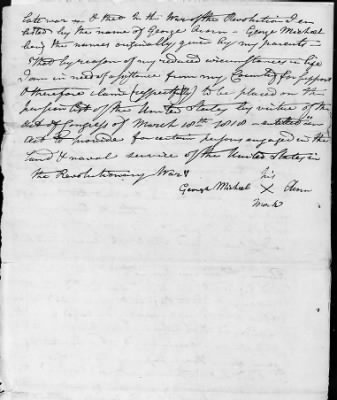 late war & that in the War of the Revolution I en
listed by the name of George Acorn - George Michael
being the names originally given by my parents -
That by reason of my reduced circumstances in life
I am in need of assistance from my Country for support
& therefore claim (respectfully) to be placed on the
pension list of the United States by virtue of the
Act of Congress of March 18th 1818 - entitled "an
act to provide for certain persons engaged in the
land & naval service of the United States in
the Revolutionary War"
his
George Michael X
Mark